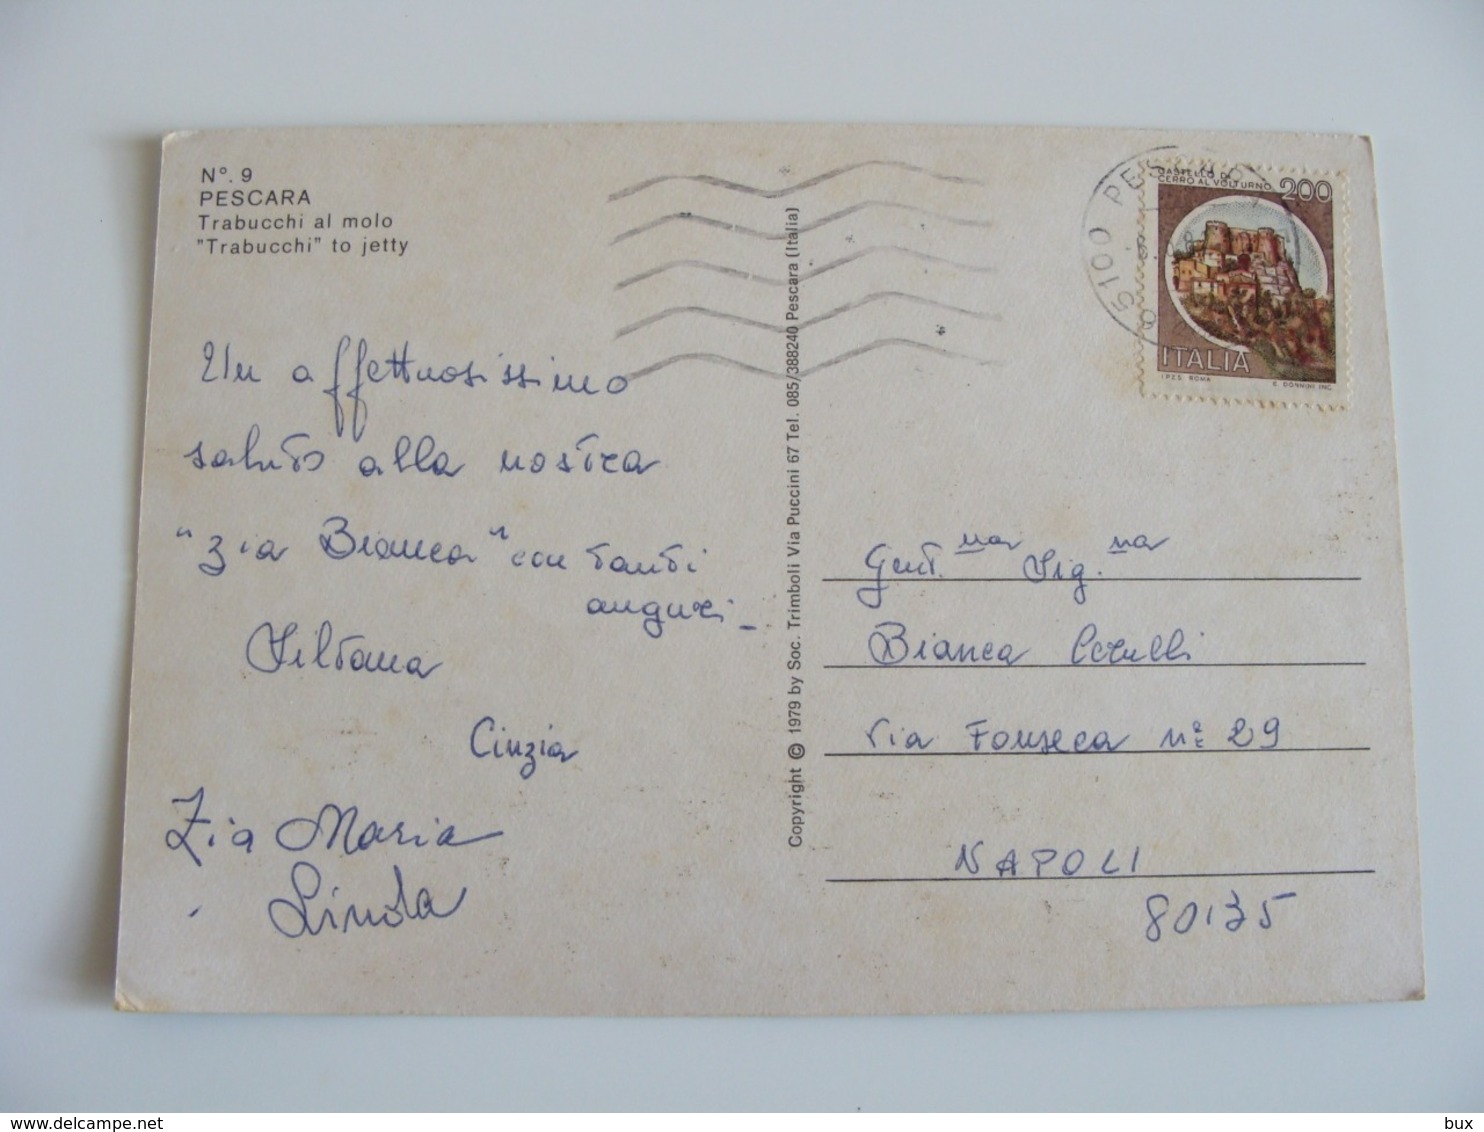 Nº. 9
PESCARA
Trabucchi al molo
"Trabucchi" to jetty
Un affettuosissimo
saluto alla nostra
"zia Bianca" con tanti
auguri_
Siltana
Cinzia
Zia Maria
Linda
Copyright © 1979 by Soc. Trimboli Via Puccini 67 Tel. 085/388240 Pescara (Italia)
65100 PESCARA
CASTELLO DI
CERRO AL VOLTURNO 200
ITALIA
I.P.Z.S. ROMA E. DONNINI INC.
Gent.ma Sig.na
Bianca Cerulli
Via Fonseca nº 29
NAPOLI
80135
delcampe.net
bux